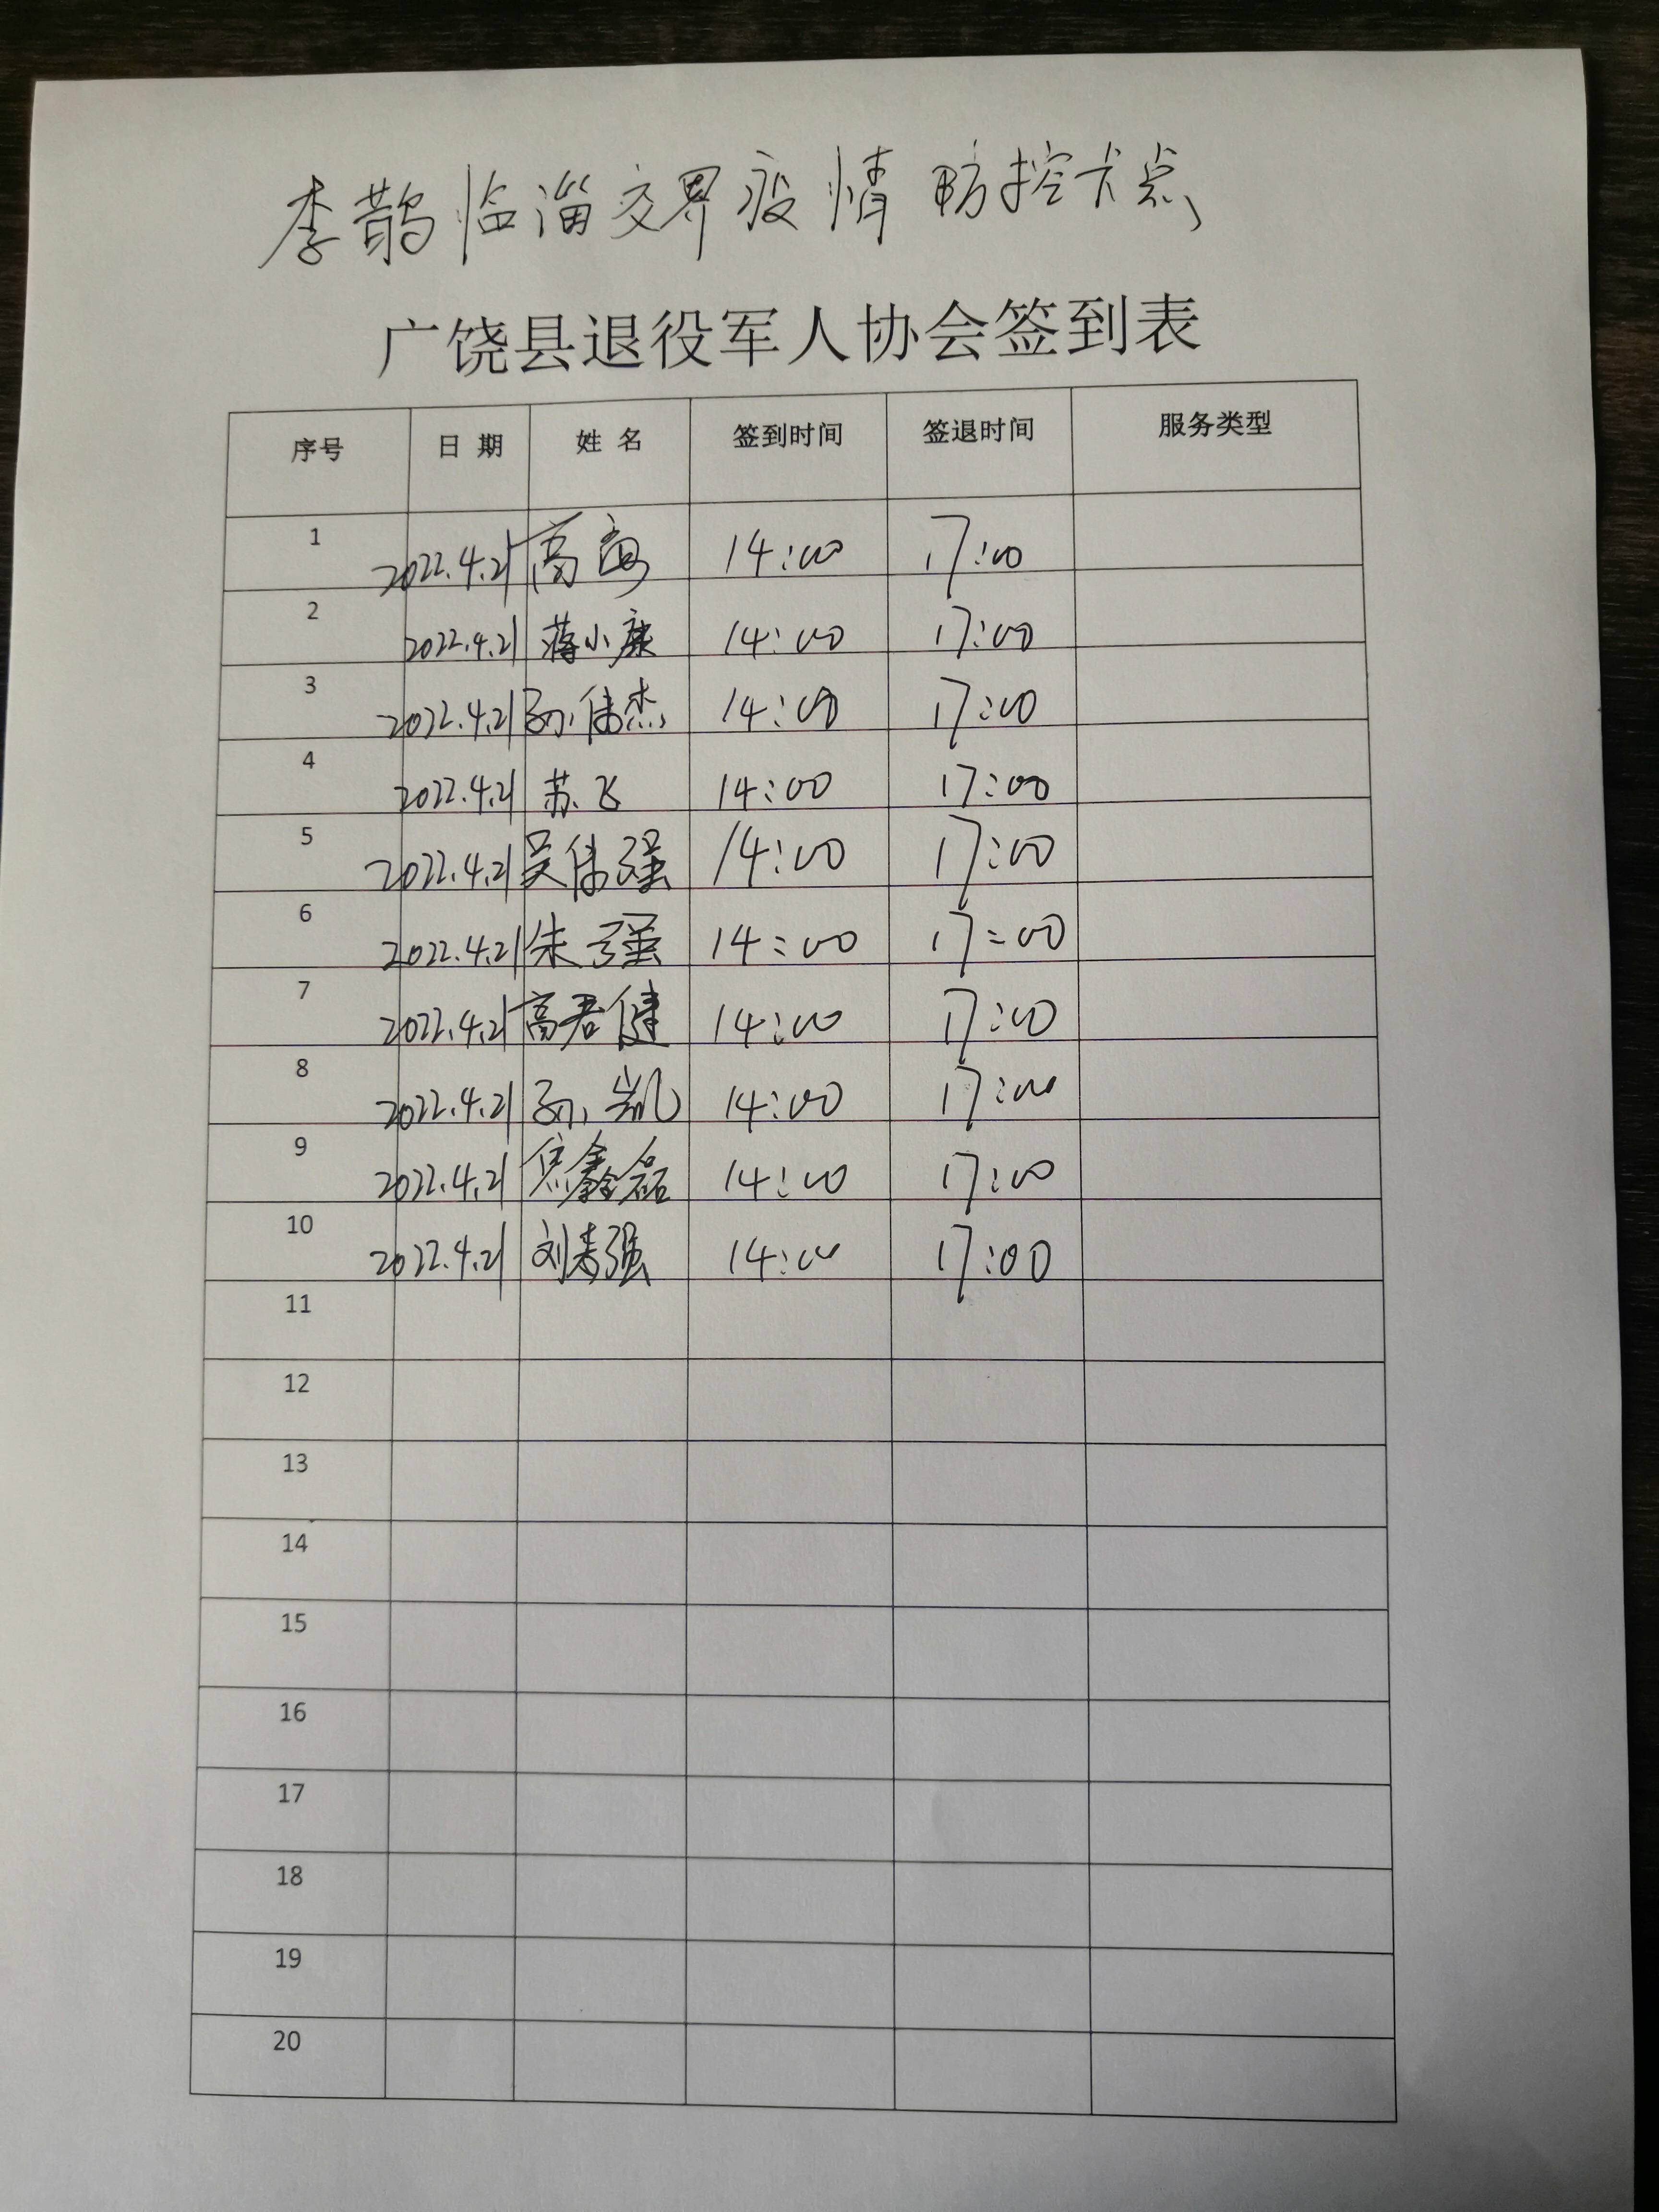 李鹊临淄交界疫情防控卡点
广饶县退役军人协会签到表
序号 日 期 姓 名 签到时间 签退时间 服务类型
1 2022.4.21 高 14:00 17:00
2 2022.4.21 蒋小康 14:00 17:00
3 2022.4.21 孙伟杰 14:00 17:00
4 2022.4.21 苏飞 14:00 17:00
5 2022.4.21 吴伟强 14:00 17:00
6 2022.4.21 朱强 14:00 17:00
7 2022.4.21 高君健 14:00 17:00
8 2022.4.21 孙凯 14:00 17:00
9 2022.4.21 焦鑫磊 14:00 17:00
10 2022.4.21 刘春强 14:00 17:00
11
12
13
14
15
16
17
18
19
20